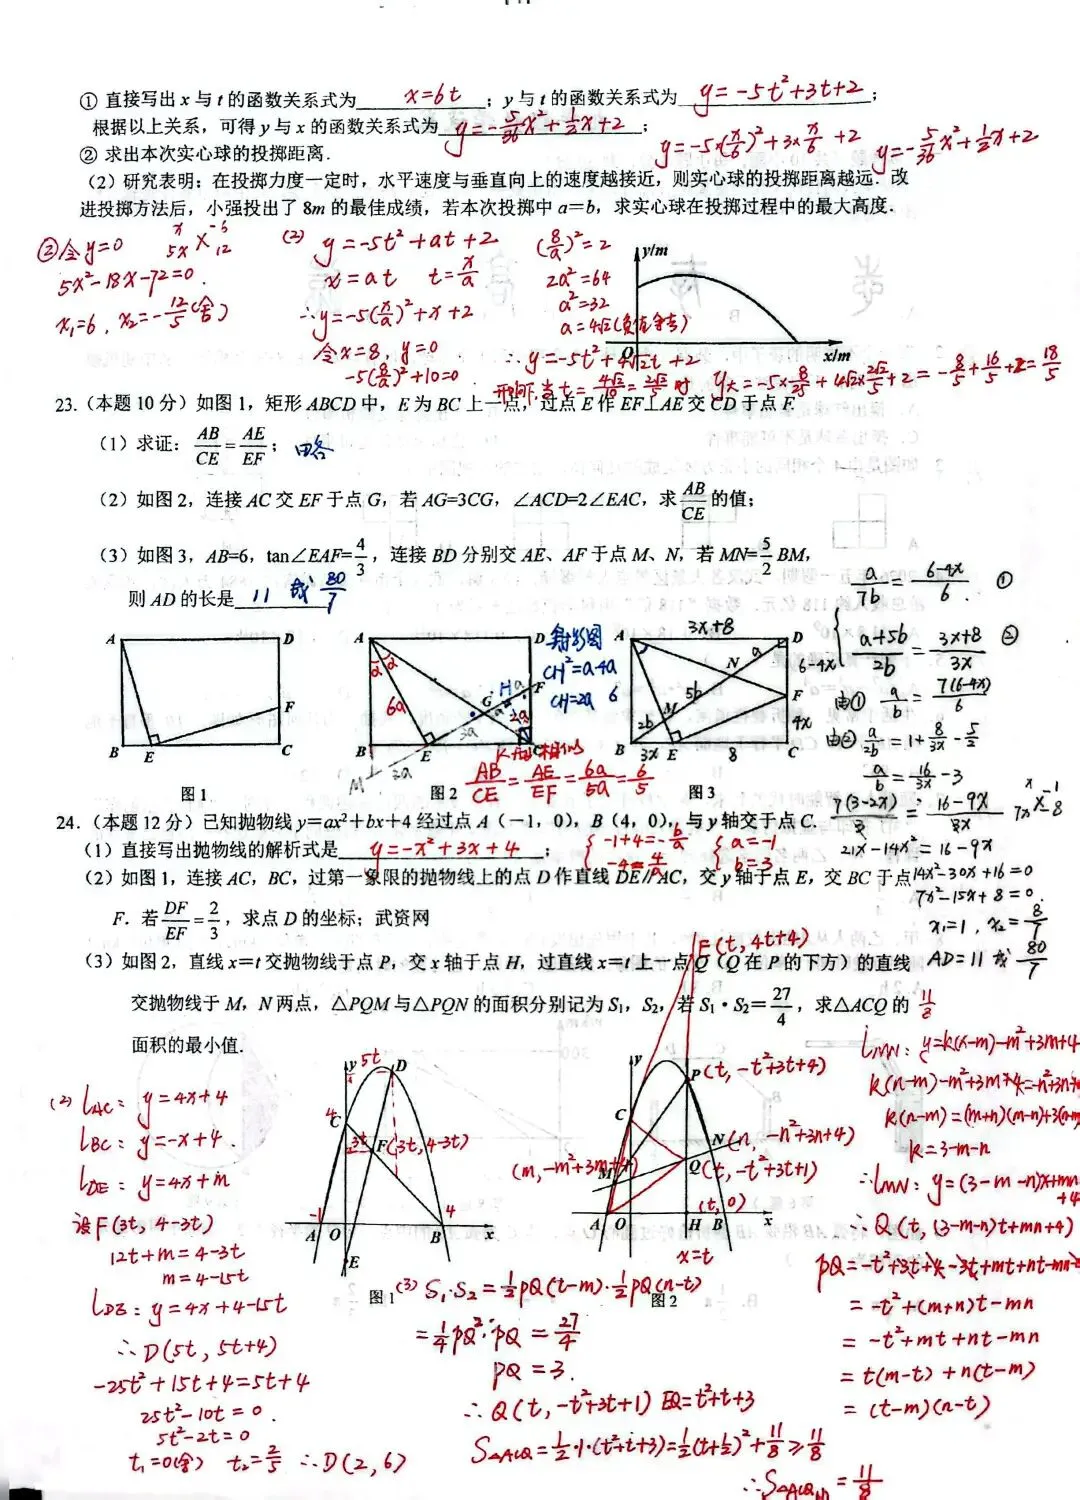 ① 直接写出 x 与 t 的函数关系式为 x=6t ；y 与 t 的函数关系式为 y=-5t²+3t+2 ；
根据以上关系，可得 y 与 x 的函数关系式为 y=-5/36x²+1/2x+2 ；
y=-5×(x/6)²+3×x/6+2 y=-5/36x²+1/2x+2
② 求出本次实心球的投掷距离.
（2）研究表明：在投掷力度一定时，水平速度与垂直向上的速度越接近，则实心球的投掷距离越远. 改
进投掷方法后，小强投出了 8m 的最佳成绩，若本次投掷中 a＝b，求实心球在投掷过程中的最大高度.
②令y=0
x -6
5x 12
5x²-18x-72=0.
x₁=6, x₂=-12/5(舍)
(2) y=-5t²+at+2
x=at t=x/a
∴y=-5(x/a)²+x+2
令x=8, y=0
-5(8/a)²+10=0
(8/a)²=2
2a²=64
a²=32
a=4√2(负值舍去)
∴y=-5t²+4√2t+2
y/m
O
x/m
当t=4√2/10=2√2/5时, y大=-5×8/25+4√2×2√2/5+2=-8/5+16/5+2=18/5
23.（本题 10 分）如图 1，矩形 ABCD 中，E 为 BC 上一点，过点 E 作 EF⊥AE 交 CD 于点 F.
（1）求证：AB/CE=AE/EF； 略
（2）如图 2，连接 AC 交 EF 于点 G，若 AG=3CG，∠ACD=2∠EAC，求 AB/CE 的值；
（3）如图 3，AB=6，tan∠EAF=4/3，连接 BD 分别交 AE、AF 于点 M、N，若 MN=5/2 BM，
则 AD 的长是 11 或 80/7
a/7b=(6-4x)/6. ①
(a+5b)/2b=(3x+8)/3x ②
由① a/b=7(6-4x)/6
由② a/2b=1+8/3x-5/2
a/b=16/3x-3
7(3-2x)/3=(16-9x)/3x
x -1
7x -8
21x-14x²=16-9x
14x²-30x+16=0
7x²-15x+8=0.
x₁=1, x₂=8/7
AD=11或80/7
A D
F
B E C
图 1
A D
α α
6a
H a
G
F
3a
2a
B E C
M 3a
图 2
射影图
CH²=a·4a
CH=2a
K相似
AB/CE=AE/EF=6a/5a=6/5
3x+8
A D
a
N
6-4x
5b
F
6
M
2b
4x
B 3x E 8 C
图 3
24.（本题 12 分）已知抛物线 y=ax²+bx+4 经过点 A（－1，0），B（4，0），与 y 轴交于点 C.
（1）直接写出抛物线的解析式是 y=-x²+3x+4 ；
{-1+4=-b/a -4=4/a {a=-1 b=3
（2）如图 1，连接 AC，BC，过第一象限的抛物线上的点 D 作直线 DE∥AC，交 y 轴于点 E，交 BC 于点
F. 若 DF/EF=2/3，求点 D 的坐标；武资网
（3）如图 2，直线 x＝t 交抛物线于点 P，交 x 轴于点 H，过直线 x＝t 上一点 Q（Q 在 P 的下方）的直线
交抛物线于 M，N 两点，△PQM 与△PQN 的面积分别记为 S₁，S₂，若 S₁·S₂＝27/4，求△ACQ 的
面积的最小值.
11/8
F(t, 4t+4)
(2) lAC: y=4x+4
lBC: y=-x+4.
lDE: y=4x+m
设F(3t, 4-3t)
12t+m=4-3t
m=4-15t
lDE: y=4x+4-15t
∴D(5t, 5t+4)
-25t²+15t+4=5t+4
25t²-10t=0.
5t²-2t=0
t₁=0(舍) t₂=2/5 ∴D(2, 6)
y
5t
D
4
C
3t
F(3t, 4-3t)
-1
A O
4
B x
E
图 1
y
P(t, -t²+3t+4)
C
N(n, -n²+3n+4)
(m, -m²+3m+4)
M
Q(t, -t²+3t+1)
(t, 0)
A O H B x
x=t
图 2
(3) S₁·S₂=1/2PQ(t-m)·1/2PQ(n-t)
=1/4PQ²·PQ=27/4
PQ=3.
∴Q(t, -t²+3t+1) FQ=t²+t+3
S△ACQ=1/2·1·(t²+t+3)=1/2(t+1/2)²+11/8≥11/8
∴S△ACQ =11/8
lMN: y=k(x-m)-m²+3m+4
k(n-m)-m²+3m+4=-n²+3n+
k(n-m)=(m+n)(m-n)+3(n-m)
k=3-m-n
∴lMN: y=(3-m-n)x+mn+4
∴Q(t, (3-m-n)t+mn+4)
PQ=-t²+3t+4-3t+mt+nt-mn-4
=-t²+(m+n)t-mn
=-t²+mt+nt-mn
=t(m-t)+n(t-m)
=(t-m)(n-t)